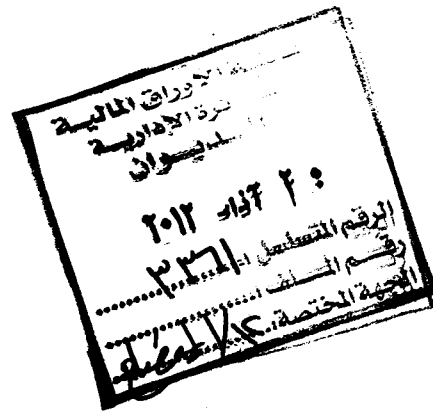 الاوراق المالية
الادارية
الديوان
٢٠ آذار ٢٠١٢
الرقم المتسلسل : ٣٣٦١
رقم الملف :
الجهة المختصة :